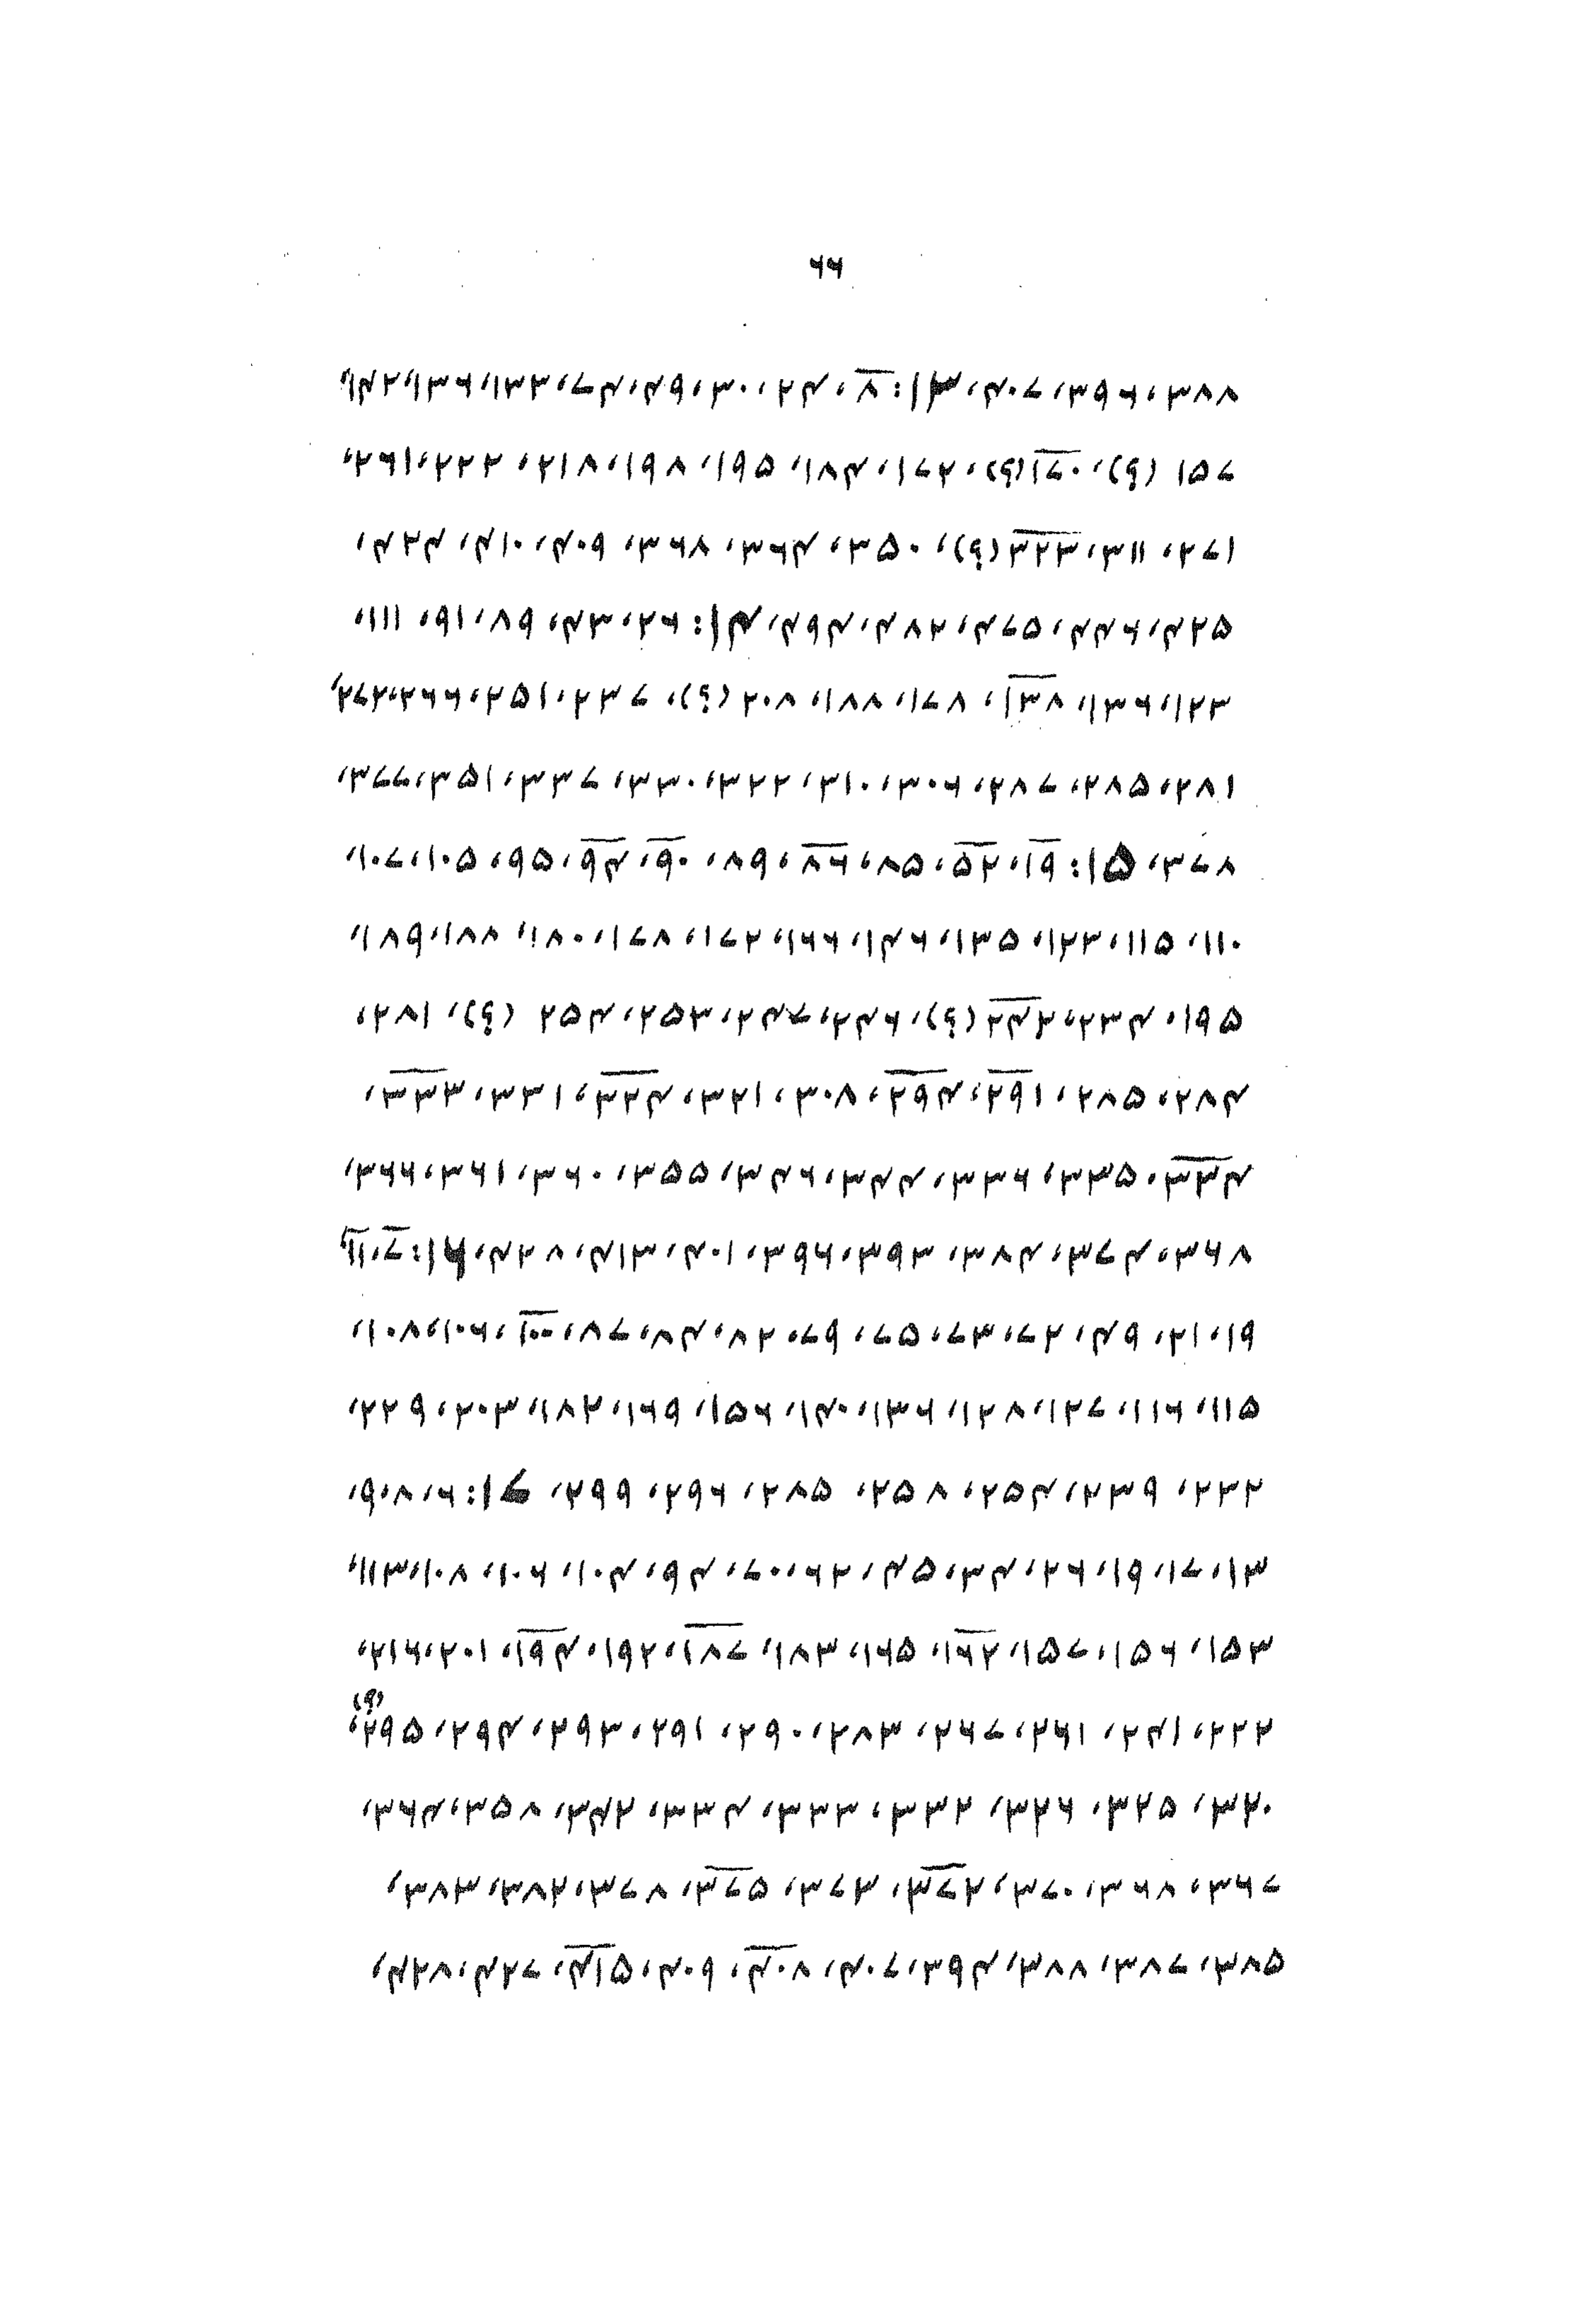 ۶۶
۳۸۸، ۳۹۶، ۴۰۷، ۱۳: ۸، ۲۴، ۳۰، ۴۹، ۷۴، ۱۳۳، ۱۳۶، ۱۴۲،
۱۵۷ (؟)، ۱۷۰(؟)، ۱۷۲، ۱۸۴، ۱۹۵، ۱۹۸، ۲۱۸، ۲۲۲، ۲۶۱،
۲۷۱، ۳۱۱، ۳۲۳(؟)، ۳۵۰، ۳۶۴، ۳۶۸، ۴۰۹، ۴۱۰، ۴۲۴،
۴۲۵، ۴۴۶، ۴۷۵، ۴۸۲، ۴۹۴، ۱۴: ۲۶، ۴۳، ۸۹، ۹۱، ۱۱۱،
۱۲۳، ۱۳۶، ۱۳۸، ۱۷۸، ۱۸۸، ۲۰۸ (؟)، ۲۳۷، ۲۵۱، ۲۶۶، ۲۷۲،
۲۸۱، ۲۸۵، ۲۸۷، ۳۰۶، ۳۱۰، ۳۲۲، ۳۳۰، ۳۳۷، ۳۵۱، ۳۷۷،
۳۷۸، ۱۵: ۱۹، ۵۲، ۸۵، ۸۶، ۸۹، ۹۰، ۹۴، ۹۵، ۱۰۵، ۱۰۷،
۱۱۰، ۱۱۵، ۱۲۳، ۱۳۵، ۱۴۶، ۱۶۶، ۱۷۲، ۱۷۸، ۱۸۰، ۱۸۸، ۱۸۹،
۱۹۵، ۲۳۴، ۲۴۲ (؟)، ۲۴۶، ۲۴۷، ۲۵۳، ۲۵۴ (؟)، ۲۸۱،
۲۸۴، ۲۸۵، ۲۹۱، ۲۹۴، ۳۰۸، ۳۲۱، ۳۲۴، ۳۳۱، ۳۳۳،
۳۳۴، ۳۳۵، ۳۳۶، ۳۴۴، ۳۴۶، ۳۵۵، ۳۶۰، ۳۶۱، ۳۶۶،
۳۶۸، ۳۷۴، ۳۸۴، ۳۹۳، ۳۹۶، ۴۰۱، ۴۱۳، ۴۲۸، ۱۶: ۷، ۱۱،
۱۹، ۲۱، ۴۹، ۷۲، ۷۳، ۷۵، ۷۹، ۸۲، ۸۴، ۸۷، ۱۰۰، ۱۰۶، ۱۰۸،
۱۱۵، ۱۱۶، ۱۲۷، ۱۲۸، ۱۳۶، ۱۴۰، ۱۵۶، ۱۶۹، ۱۸۲، ۲۰۳، ۲۲۹،
۲۳۲، ۲۳۹، ۲۵۴، ۲۵۸، ۲۸۵، ۲۹۶، ۲۹۹، ۱۷: ۶، ۸، ۹،
۱۳، ۱۷، ۱۹، ۲۶، ۳۴، ۴۵، ۶۲، ۷۰، ۹۴، ۱۰۴، ۱۰۶، ۱۰۸، ۱۱۳،
۱۵۳، ۱۵۶، ۱۵۷، ۱۶۲، ۱۶۵، ۱۸۳، ۱۸۷، ۱۹۲، ۱۹۴، ۲۰۱، ۲۱۶،
۲۲۲، ۲۴۱، ۲۶۱، ۲۶۷، ۲۸۳، ۲۹۰، ۲۹۱، ۲۹۳، ۲۹۴، ۲۹۵ (؟)،
۳۲۰، ۳۲۵، ۳۲۶، ۳۳۲، ۳۳۳، ۳۳۴، ۳۴۲، ۳۵۸، ۳۶۴،
۳۶۷، ۳۶۸، ۳۷۰، ۳۷۲، ۳۷۳، ۳۷۵، ۳۷۸، ۳۸۲، ۳۸۳،
۳۸۵، ۳۸۷، ۳۸۸، ۳۹۴، ۴۰۷، ۴۰۸، ۴۰۹، ۴۱۵، ۴۲۷، ۴۲۸،